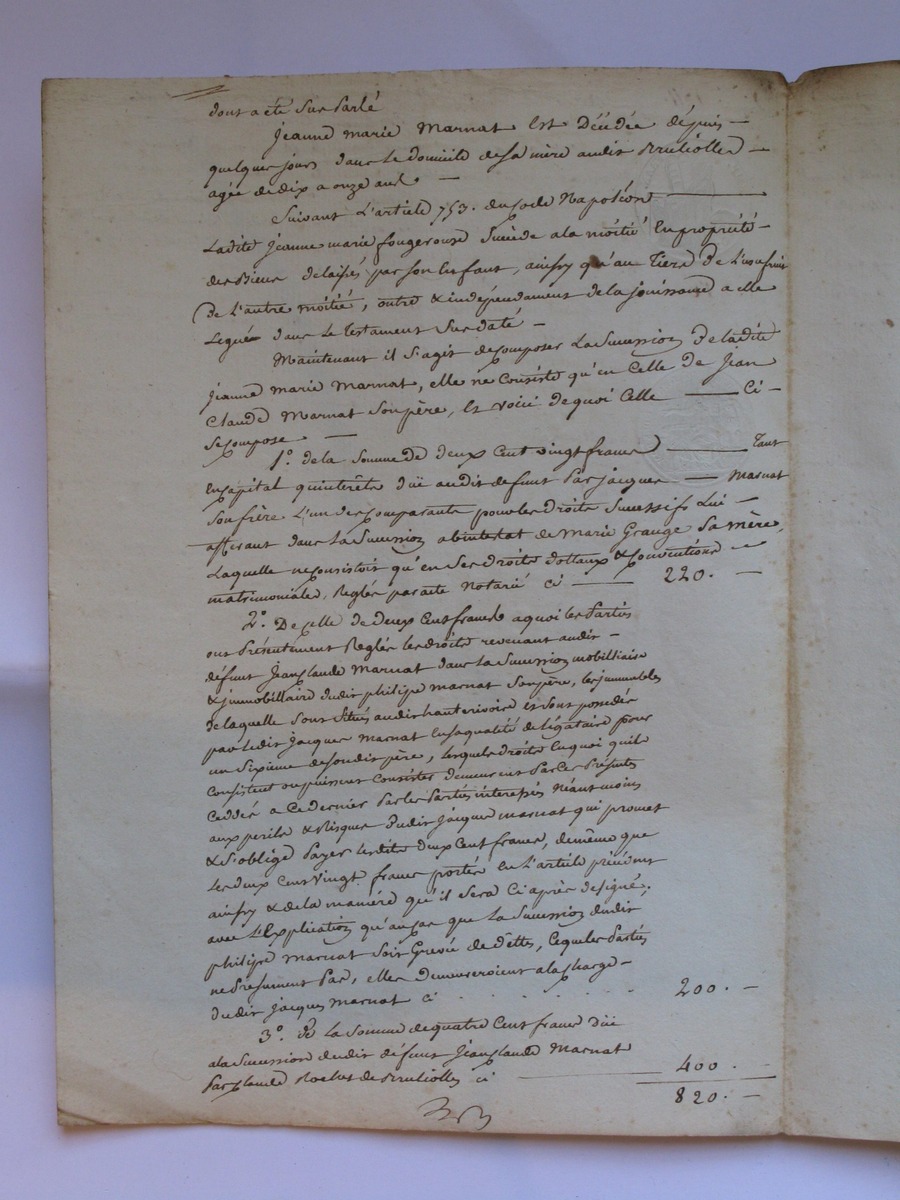 dont a été Sus Parlé
Jeanne marie Marnat Est Décédée dépuis —
quelques jours dans le domicile de sa mère audit Brulliolles —
agée de dix a onze ans —
Suivant L'article 753. du Code Napoléon —
Ladite Jeanne marie fougerouse Succède a la moitié En propriété —
des Biens délaissés par son Enfant, ainsy qu'au Tiers de L'usufruit
De L'autre moitié, outre & indépendament de la jouissance a elle
Leguée dans le testament Sus daté —
Maintenant il S'agit de composer La Succession De ladite
jeanne marie Marnat, elle ne Consiste qu'en Celle de Jean
Claude Marnat Son père, Et voici de quoi Celle — Ci —
Se compose —
1.° de la Somme De deux Cent vingt francs — Tant
En capital qu'interêts düe audit défunt Par jacques — Marnat
Son frère L'un des comparants pour les droits Successifs Lui —
afférant dans La Succession abintestat de Marie Grange Sa mère,
Laquelle ne consistoit qu'en Ses droits dottaux & conventions —
matrimoniales, Reglés par acte Notarié Ci — 220. —
2.° De Celle de deux Cent francs a quoi les Parties
ont Présentement Reglé les droits revenant audit —
défunt Jean Claude Marnat dans la Succession mobilliaire
& jmmobillaire dudit philipe Marnat Son père, les jmmeubles
de laquelle Sont Situés audit hauterivoire et Sont possédés
par ledit Jacques Marnat En sa qualité de Légataire pour
un Sixième de Sondit père, lesquels droits En quoi qu'ils
Consistent ou puissent Consister demeurent Par Ces Présentes
Cedés a Ce dernier Par les Parties interessées Néantmoins
aux perils & Risques dudit Jacques marnat qui promet
& S'oblige Payer lesdits deux Cent francs, de même que
Les deux Cent Vingt francs portés En L'article précédent
ainsy & de la manière qu'il Sera Ci après désigné,
avec L'Explication qu'au cas que La Succession dudit
philipe Marnat Soit Grevée de dettes, Ce que les Parties
ne Présument Pas, elles demeureroient a la charge —
Dudit Jacques Marnat Ci . . . . . . 200. —
3.° de La Somme de quatre Cent francs düe
a la Succession dudit défunt Jean Claude Marnat
Par Claude de Brulliolles Ci — 400. —
820. —